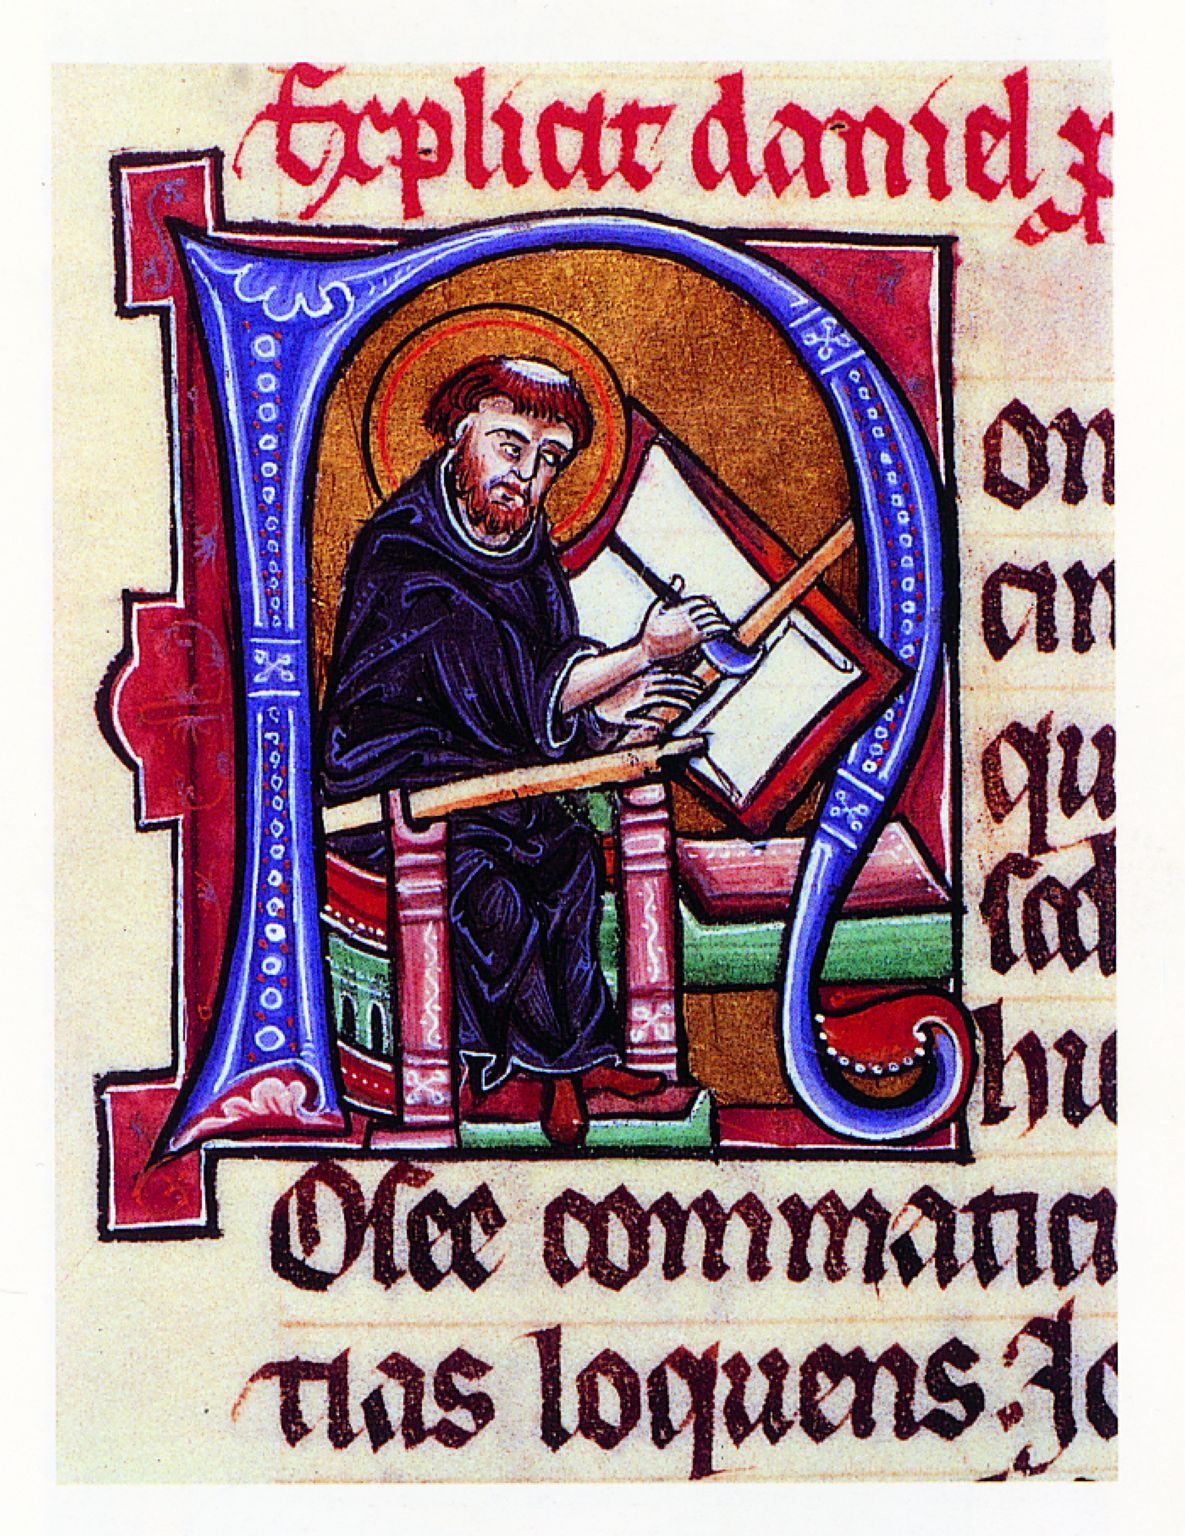 Explicit daniel p
N
on
qu
hi
Osee commatic
tias loquens. Jo